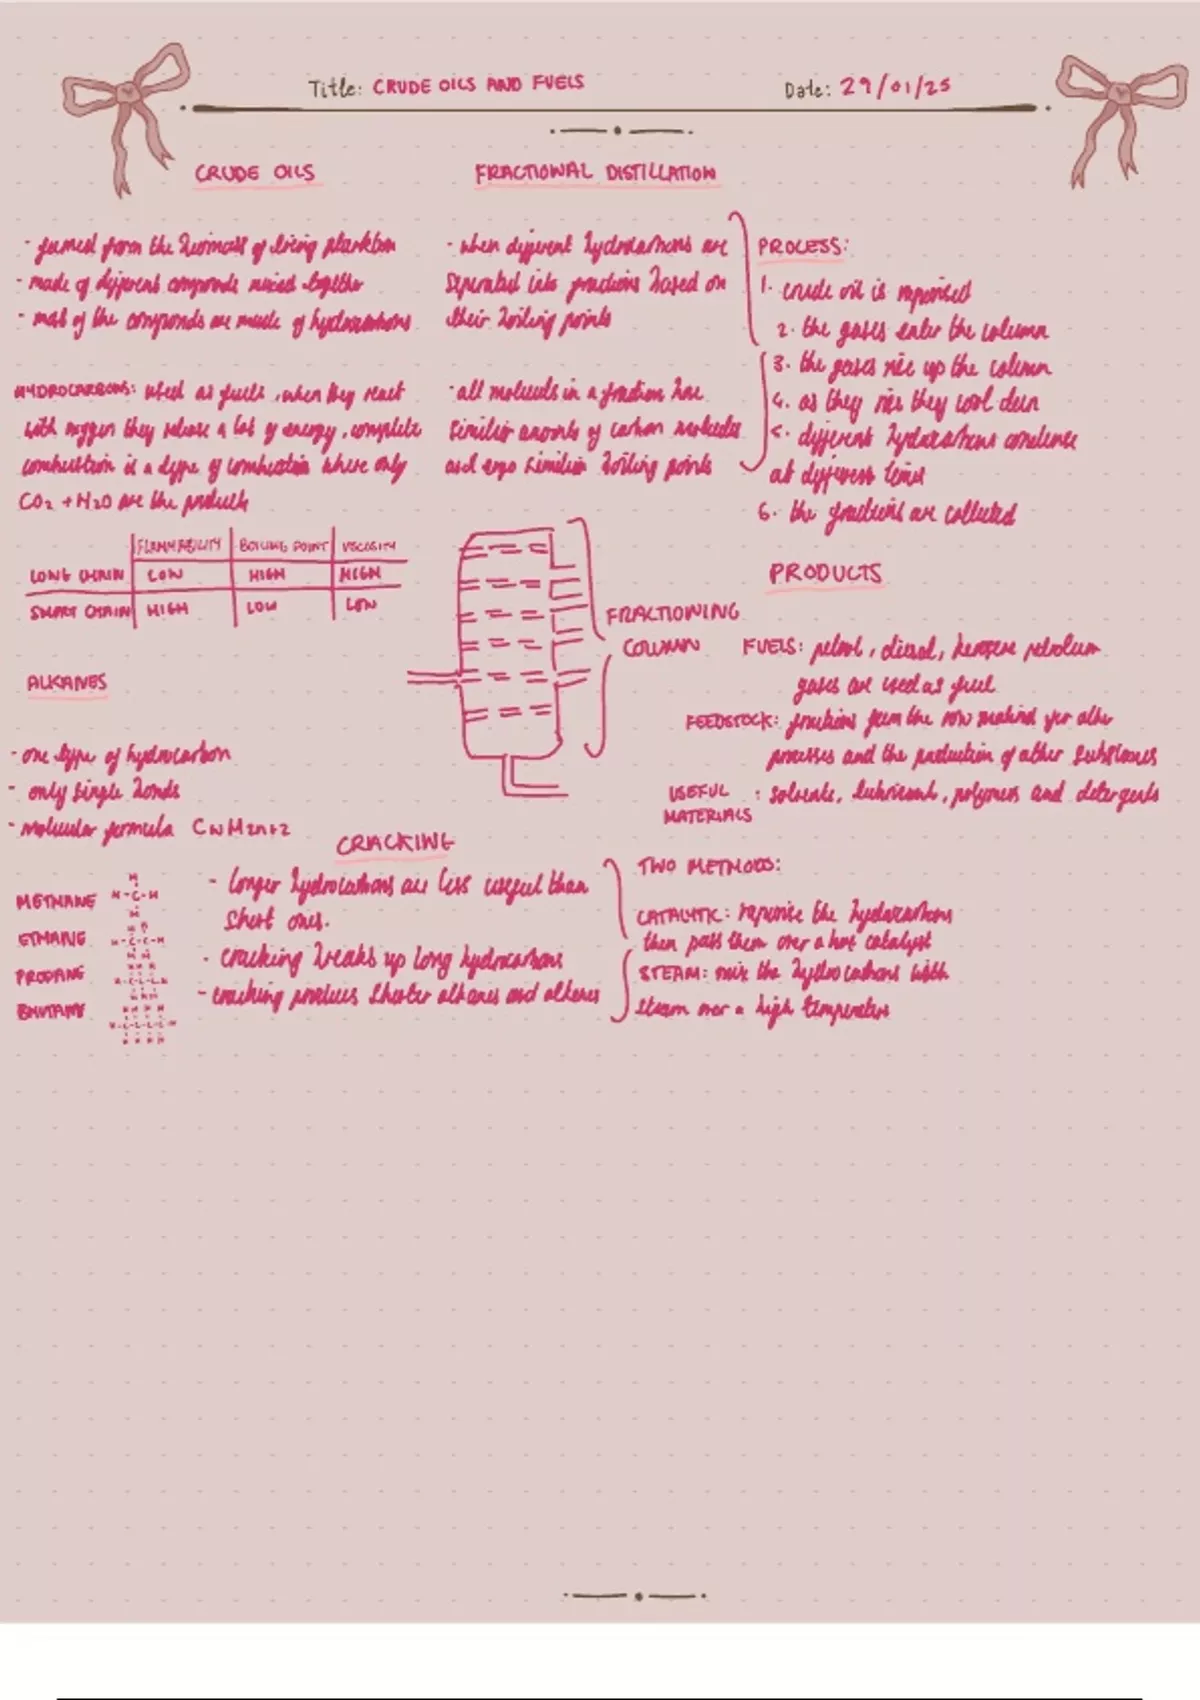 Title: CRUDE OILS AND FUELS
Date: 29/01/25
CRUDE OILS
- formed from the biomass of living plankton
- made of different compounds mixed together
- most of the compounds are made of hydrocarbons
HYDROCARBONS: used as fuels, when they react
with oxygen they release a lot of energy, complete
combustion is a type of combustion where only
CO2 + H2O are the products
FLAMMABILITY BOILING POINT VISCOSITY
LONG CHAIN LOW HIGH HIGH
CHAIN HIGH LOW LOW
ALKANES
- one type of hydrocarbon
- only single bonds
- molecular formula CNH2n+2
METHANE
ETHANE
PROPANE
FRACTIONAL DISTILLATION
- when different hydrocarbons are
separated into fractions based on
their boiling points
- all molecules in a fraction have
similar amounts of carbon molecules
and ergo similar boiling points
PROCESS:
1. crude oil is
2. the gases enter the column
3. the gases rise up the column
4. as they rise they cool down
5. different hydrocarbons condense
at different times
6. the fractions are collected
FRACTIONING
COLUMN
PRODUCTS
FUELS: petrol, diesel, petroleum
gases are used as fuel
FEEDSTOCK: fractions form the raw material for other
processes and the production of other substances
USEFUL
MATERIALS
: solvents, lubricants, polymers and detergents
CRACKING
- longer hydrocarbons are less useful than
short ones.
- cracking breaks up long hydrocarbons
- cracking produces shorter alkanes and alkenes
TWO METHODS:
CATALYTIC: the hydrocarbons
then pass them over a hot catalyst
STEAM: mix the hydrocarbons with
steam over a high temperature